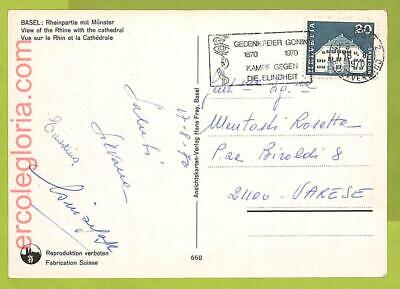 BASEL: Rheinpartie mit Münster
View of the Rhine with the cathedral
Vue sur le Rhin et la Cathédrale
GEDENKFEIER GONIN
1870 1970
KAMPF GEGEN
DIE BLINDHEIT
HELVETIA
30
Mentasti Rosetta
P.za Biroldi 8
21100 - VARESE
Saluti
Silvana
17-8-70
Ansichtskarten-Verlag Hans Frey, Basel
Reproduktion verboten
Fabrication Suisse
660
ercolegloria.com